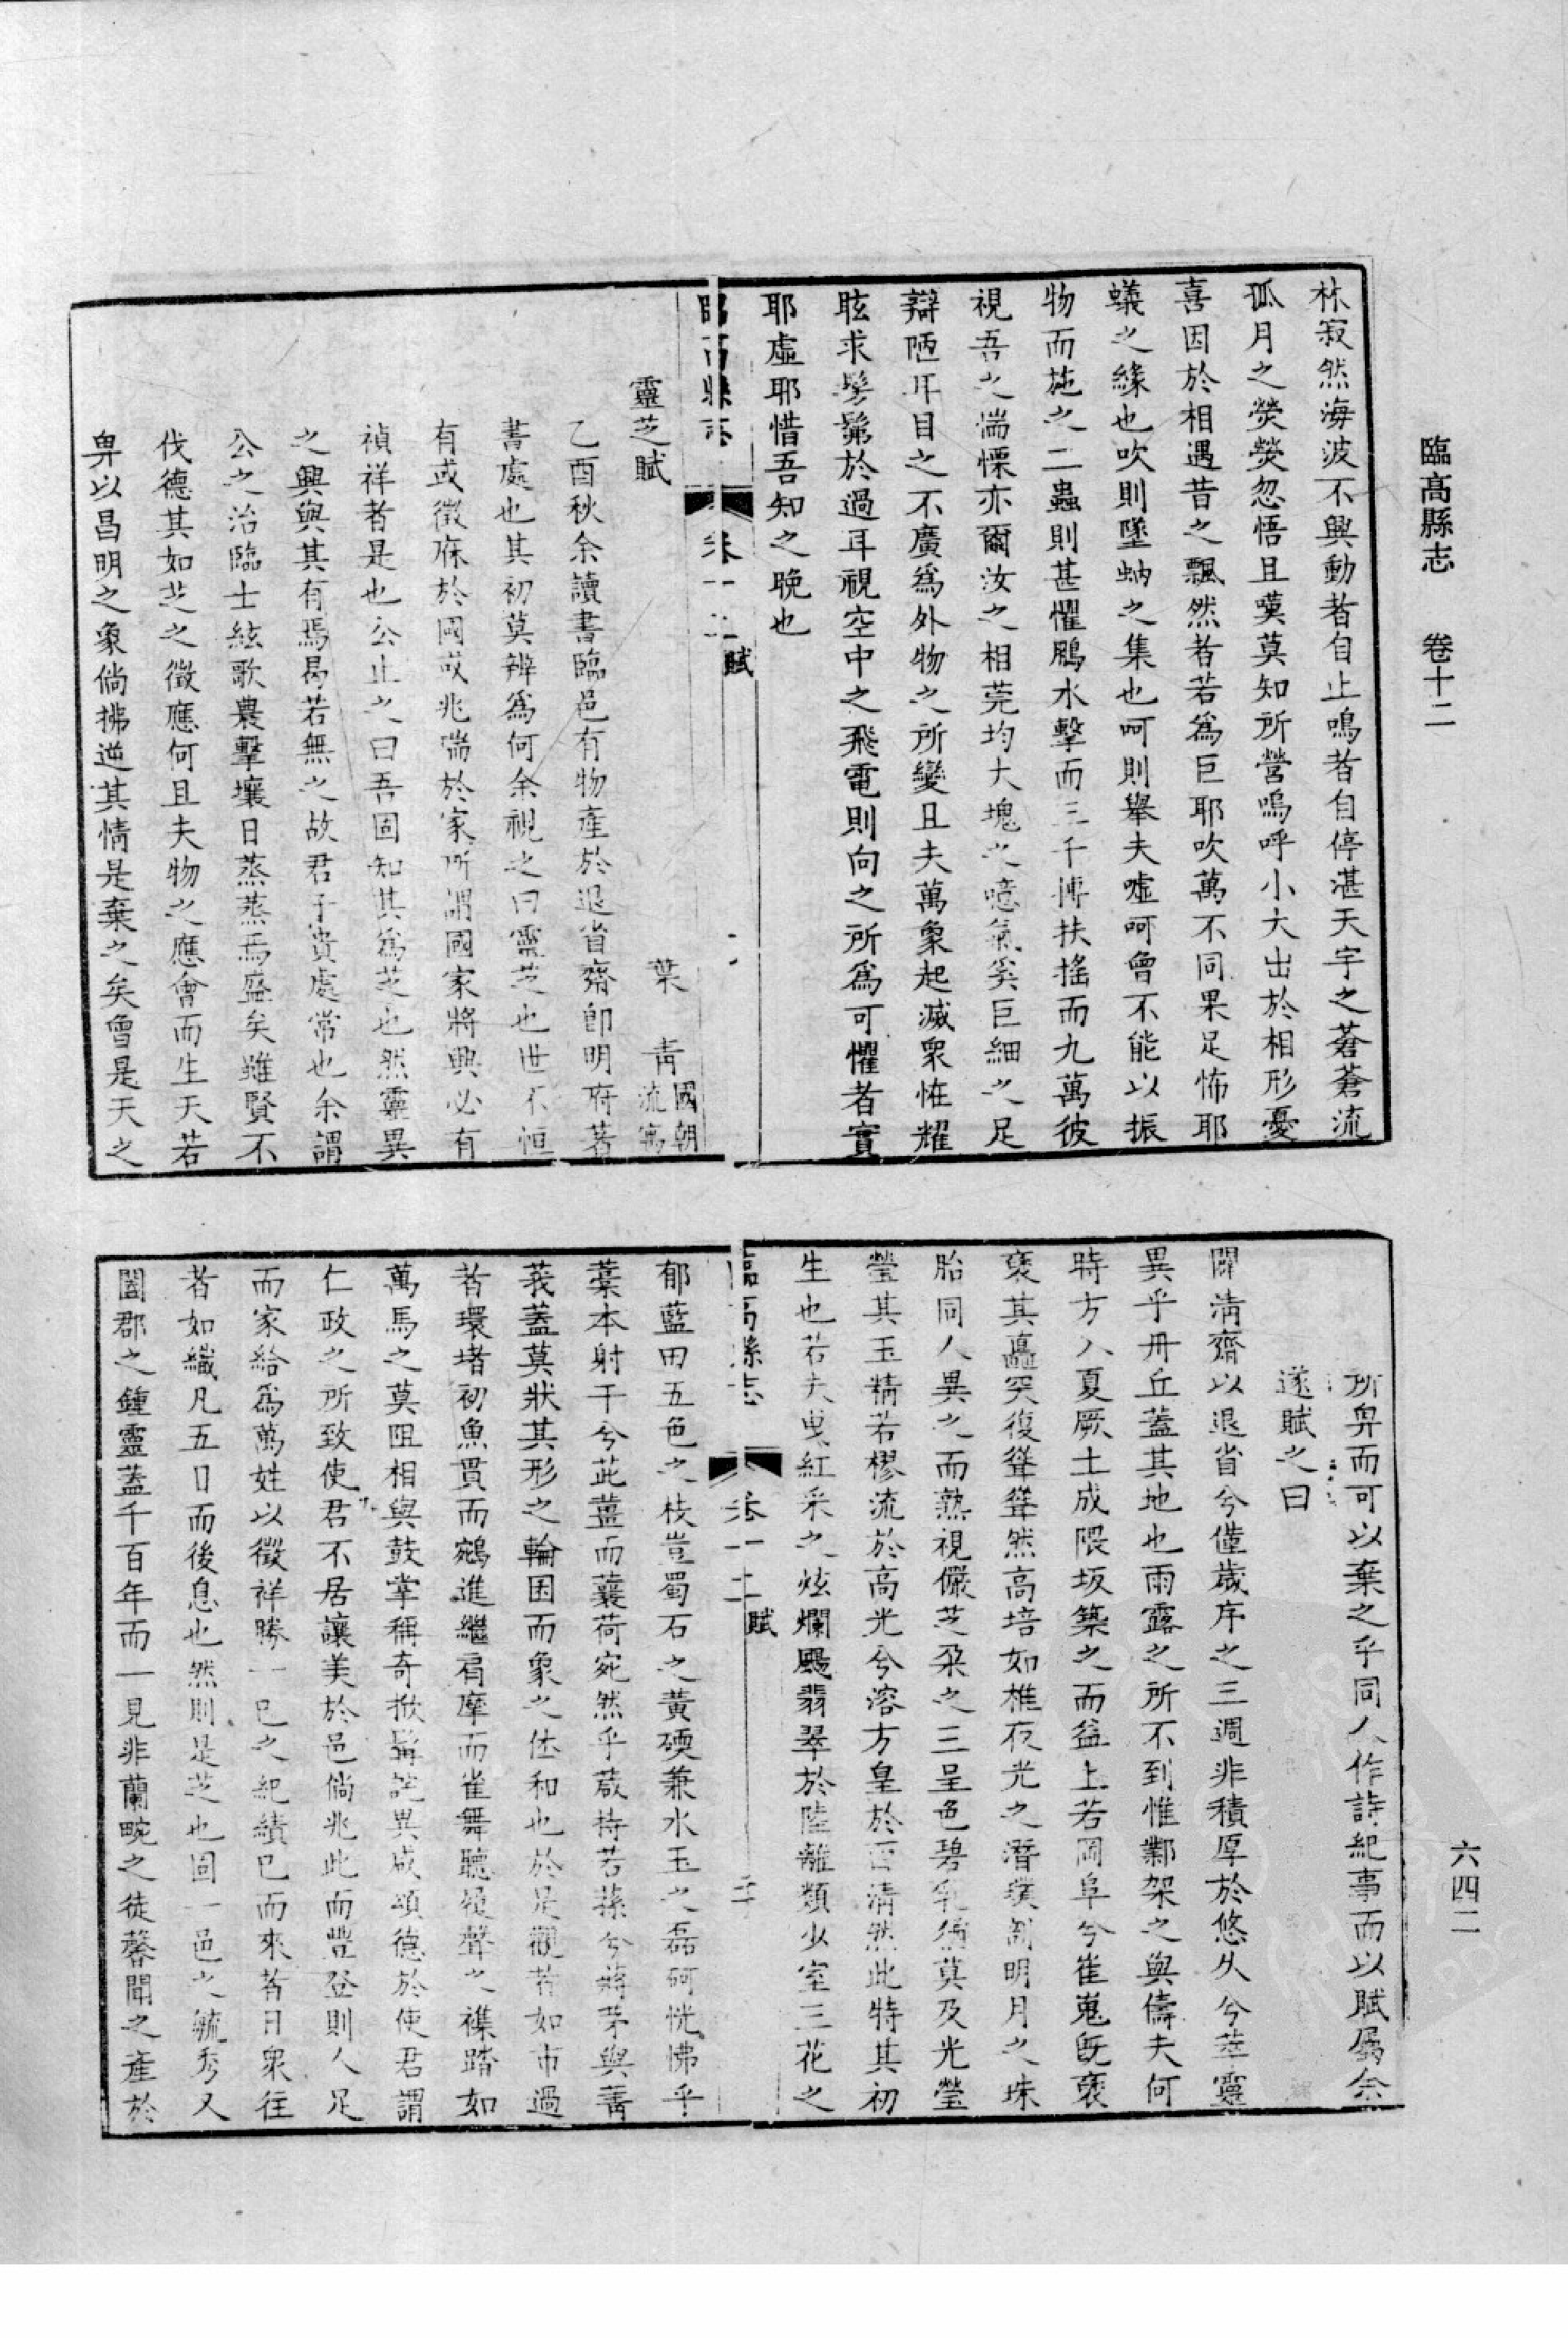 臨高縣志　卷十二
林寂然海波不興動者自止鳴者自停湛天宇之蒼蒼流
孤月之熒熒忽悟且嘆莫知所營嗚呼小大出於相形憂
喜因於相遇昔之飄然者若爲巨耶吹萬不同果足怖耶
蟻之緣也吹則墜蚋之集也呵則舉夫噓呵曾不能以振
物而施之二蟲則甚懼鵬水擊而三千摶扶搖而九萬彼
視吾之惴慄亦爾汝之相莞均大塊之噫氣奚巨細之足
辯陋耳目之不廣爲外物之所變且夫萬象起滅衆怪耀
眩求髣髴於過耳視空中之飛電則向之所爲可懼者實
耶虛耶惜吾知之晚也
臨高縣志　卷十二　賦
靈芝賦　葉靑　國朝流寓
乙酉秋余讀書臨邑有物產於退省齋卽明府著
書處也其初莫辨爲何余視之曰靈芝也世不恒
有或徵庥於國或兆瑞於家所謂國家將興必有
禎祥者是也公止之曰吾固知其爲芝也然靈異
之興與其有焉曷若無之故君子貴處常也余謂
公之治臨士絃歌農擊壤日蒸蒸焉盛矣雖賢不
伐德其如芝之徵應何且夫物之應會而生天若
畀以昌明之象倘拂逆其情是棄之矣曾是天之
所畀而可以棄之乎同人作詩紀事而以賦屬余
遂賦之曰
闢淸齋以退省兮僅歲序之三週非積厚於悠久兮萃靈
異乎丹丘蓋其地也雨露之所不到惟鄴架之與儔夫何
時方入夏厥土成隈坂築之而益上若岡阜兮崔嵬旣裒
裒其矗突復聳聳然高培如椎夜光之潛璞剖明月之珠
胎同人異之而熟視儼芝朶之三呈色碧乳須莫及光瑩
瑩其玉精若樛流於高光兮溶方皇於西淸然此特其初
生也若夫曳紅采之炫爛颺翡翠於陸離類少室三花之
臨高縣志　卷十二　賦
郁藍田五色之枝豈蜀石之黃碝兼水玉之磊砢恍怫乎
藁本射干兮茈薑而蘘荷宛然乎葴持若蓀兮蔣茅與靑
莪蓋莫狀其形之輪囷而象之佳和也於是觀者如市過
者環堵初魚貫而鵷進繼肩摩而雀舞聽履聲之襍踏如
萬馬之莫阻相與鼓掌稱奇掀髯詫異咸頌德於使君謂
仁政之所致使君不居讓美於邑倘兆此而豐登則人足
而家給爲萬姓以徵祥勝一已之紀績已而來者日衆往
者如織凡五日而後息也然則是芝也固一邑之毓秀又
闔郡之鍾靈蓋千百年而一見非蘭畹之徒馨聞之產於
六四二